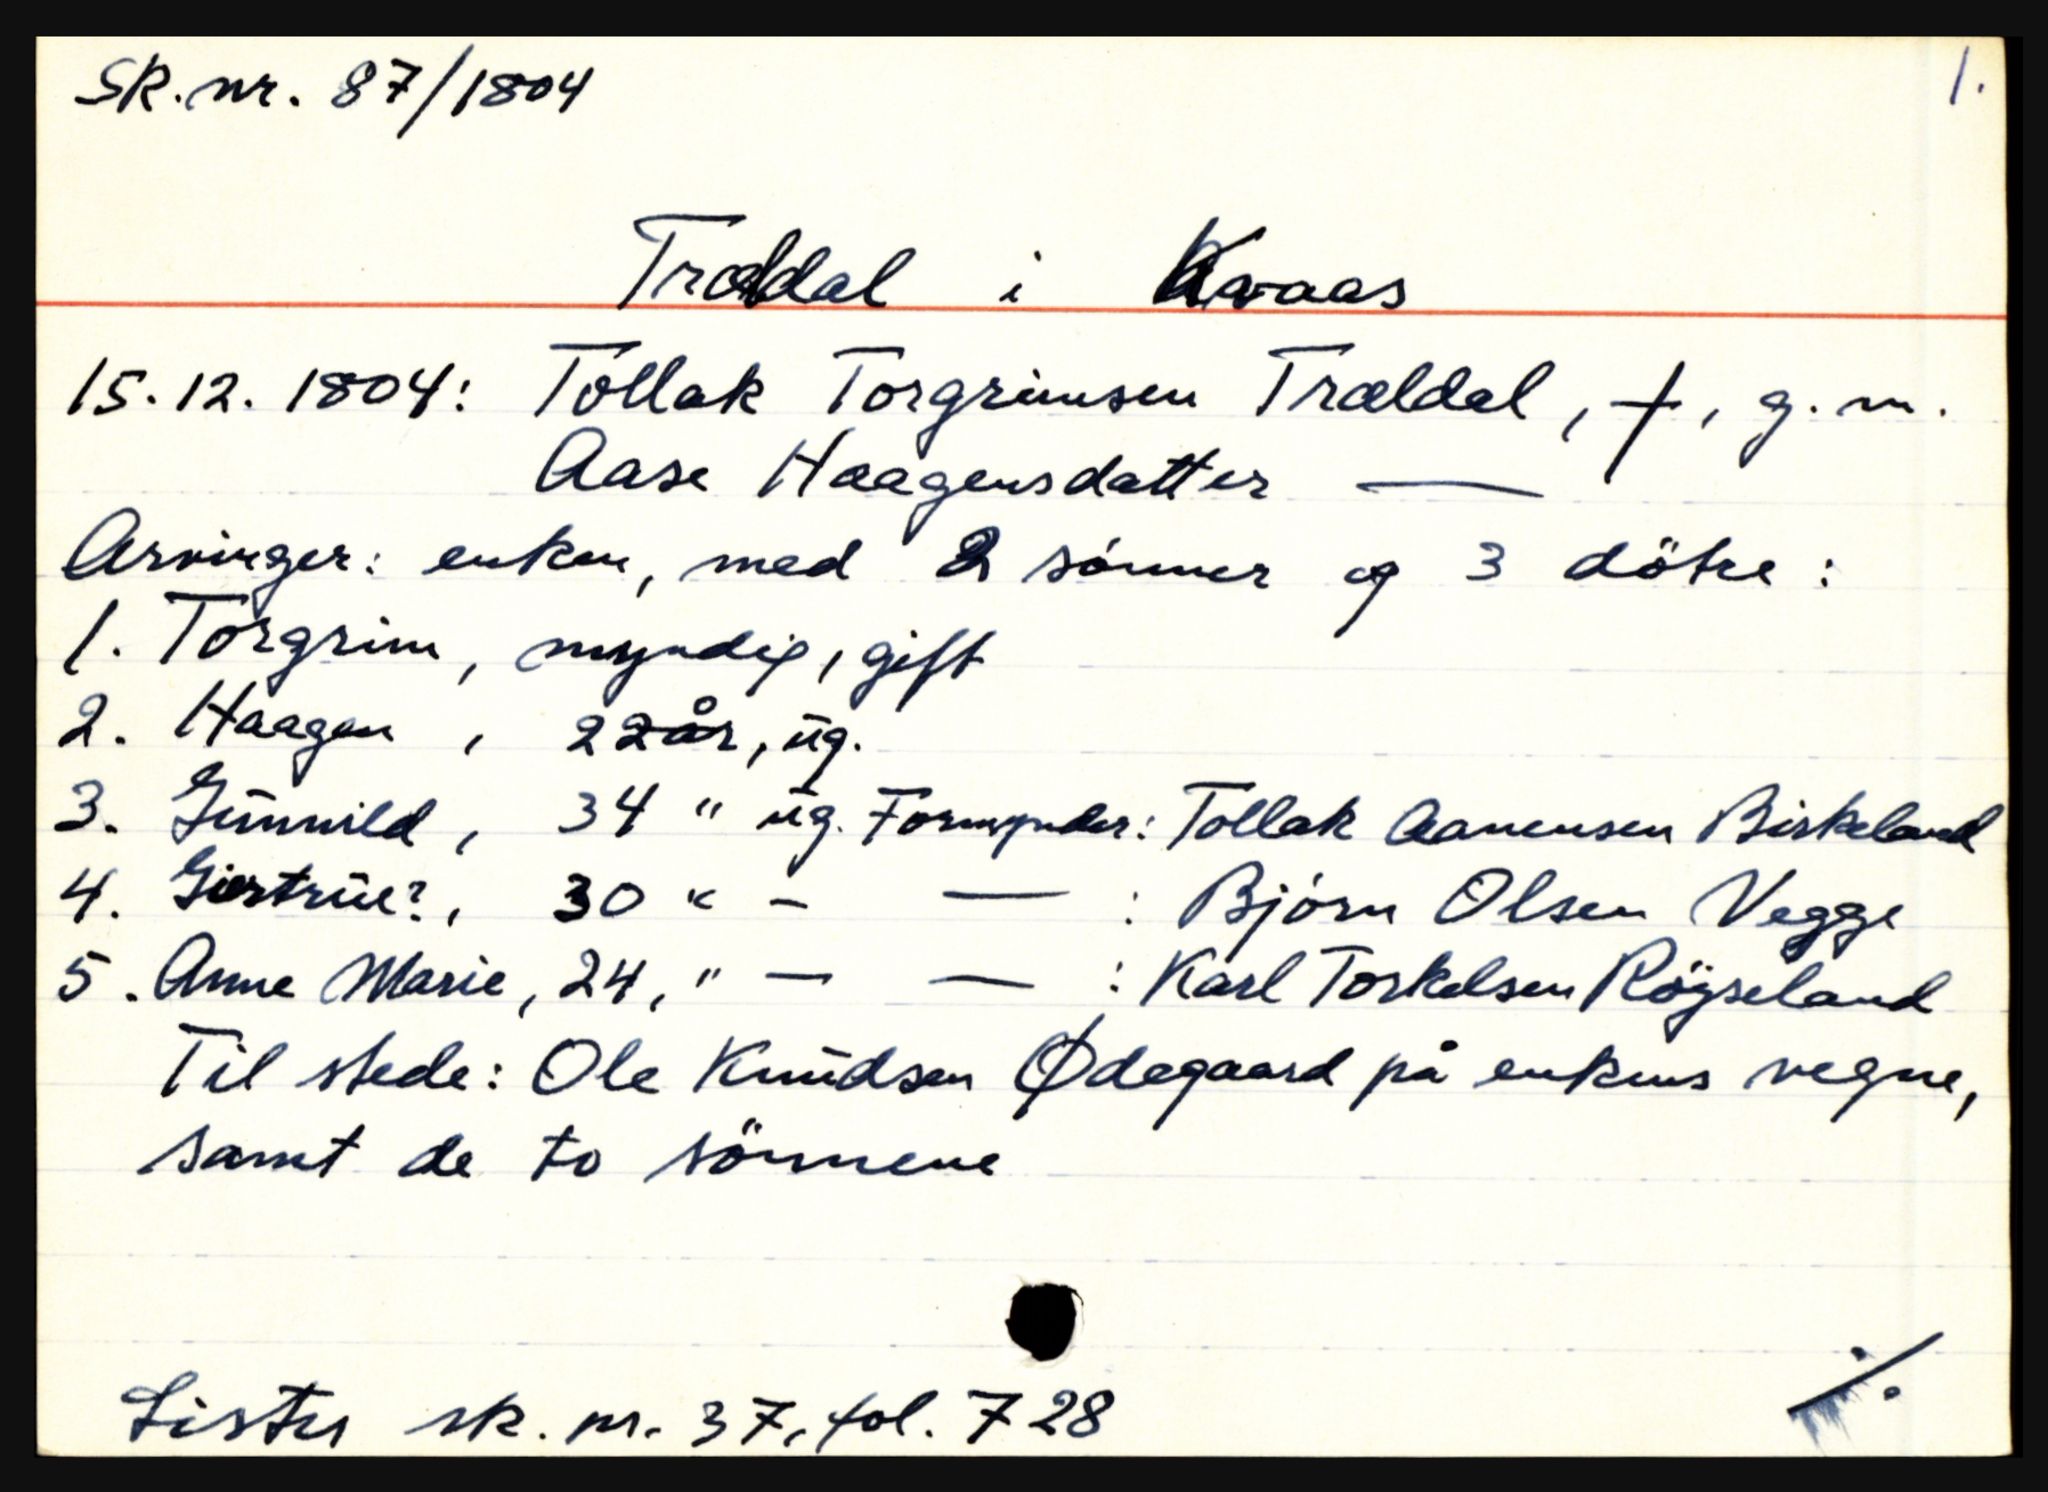 SK. nr. 87/1804
1.
Trældal i Kvaas
15.12.1804: Tollak Torgrimsen Trældal, †, g. m.
Aase Haagensdatter —
Arvinger: enken, med 2 sønner og 3 døtre:
1. Torgrim, myndig, gift
2. Haagen, 22 år, ug.
3. Gunnild, 34 " ug. Formynder: Tollak Aanensen Birkeland
4. Giertrue?, 30 " - — : Bjørn Olsen Vegge
5. Anne Marie, 24, " — — : Karl Torkelsen Röyseland
Til stede: Ole Knudsen Ødegaard på enkens vegne,
samt de to sönnene
Lister sk. nr. 37, fol. 728
./.